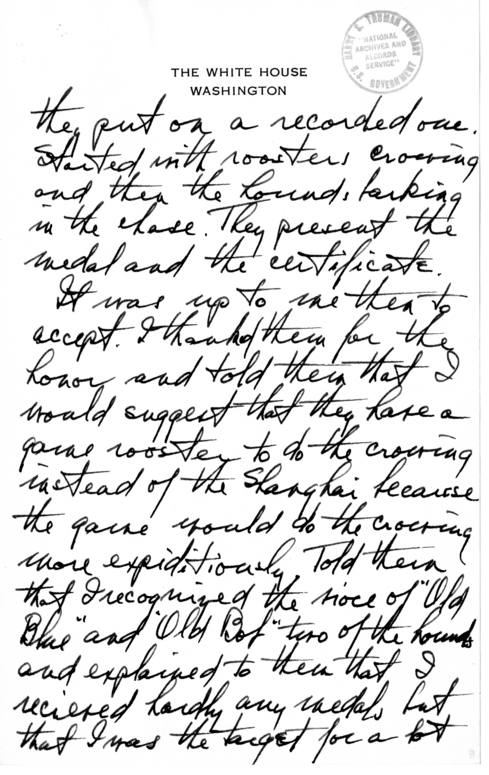 HARRY S. TRUMAN LIBRARY
"NATIONAL
ARCHIVES AND
RECORDS
SERVICE"
U.S. GOVERNMENT
THE WHITE HOUSE
WASHINGTON
they put on a recorded one.
Started with roosters crowing
and then the hounds barking
in the chase. They present the
medal and the certificate.
It was up to me then to
accept. I thanked them for the
honor and told them that I
would suggest that they have a
game rooster to do the crowing
instead of the Shanghai because
the game would do the crowing
more expiditiously. Told them
that I recognized the voice of "Old
Blue" and "Old Bob" two of the hounds
and explained to them that I
recieved hardly any medals but
that I was the target for a lot